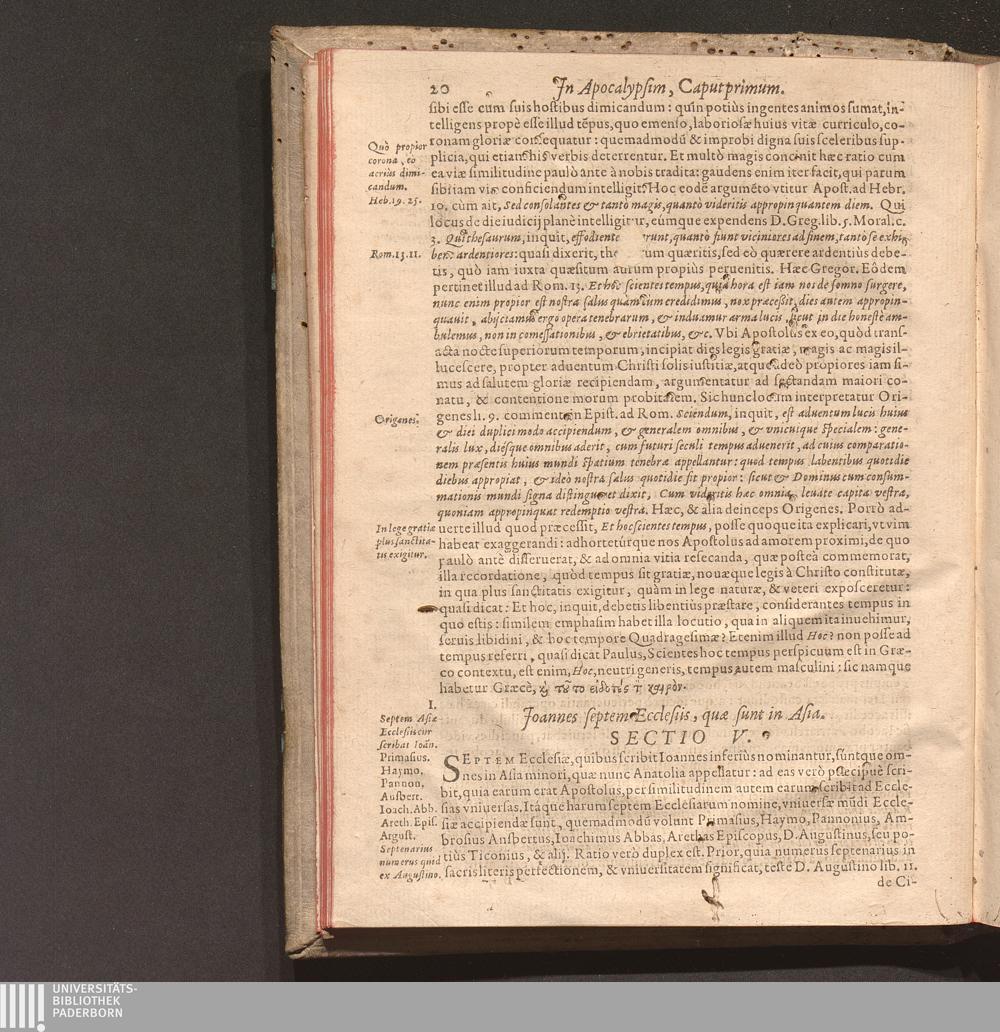 20
In Apocalypsim, Caput primum.
sibi esse cum suis hostibus dimicandum: quin potiùs ingentes animos sumat, in-
telligens propè esse illud tẽpus, quo emenso, laboriosæ huius vitæ curriculo, co-
ronam gloriæ consequatur: quemadmodũ & improbi digna suis sceleribus sup-
plicia, qui etiam his verbis deterrentur. Et multò magis concinit hæc ratio cum
ea viæ similitudine paulò ante à nobis tradita: gaudens enim iter facit, qui parum
sibi iam viæ conficiendum intelligit. Hoc eodẽ argumẽto vtitur Apost. ad Hebr.
10. cùm ait, Sed consolantes & tantò magis, quantò videritis appropinquantem diem. Qui
locus de die iudicij planè intelligitur, eúmque expendens D. Greg. lib. 5. Moral. c.
3. Qui thesaurum, inquit, effodiente runt, quantò fiunt viciniores ad finem, tantò se exhi-
bent ardentiores: quasi dixerit, the um quæritis, sed eò quærere ardentiùs debe-
tis, quò iam iuxta quæsitum aurum propiùs peruenitis. Hæc Gregor. Eôdem
pertinet illud ad Rom. 13. Et hoc scientes tempus, quia hora est iam nos de somno surgere,
nunc enim propior est nostra salus quàm cùm credidimus, nox præcessit, dies autem appropin-
quauit, abijciamus ergo opera tenebrarum, & induamur arma lucis, sicut in die honestè am-
bulemus, non in comessationibus, & ebrietatibus, &c. Vbi Apostolus ex eo, quòd trans-
acta nocte superiorum temporum, incipiat dies legis gratiæ, magis ac magis il-
lucescere, propter aduentum Christi solis iustitiæ, atque adeò propiores iam si-
mus ad salutem gloriæ recipiendam, argumentatur ad sectandam maiori co-
natu, & contentione morum probitatem. Sic hunc locum interpretatur Ori-
genes li. 9. comment. in Epist. ad Rom. Sciendum, inquit, est aduentum lucis huius
& diei duplici modo accipiendum, & generalem omnibus, & vnicuique specialem: gene-
ralis lux, diésque omnibus aderit, cum futuri seculi tempus aduenerit, ad cuius comparatio-
nem præsentis huius mundi spatium tenebræ appellantur: quod tempus labentibus quotidie
diebus appropiat, & ideò nostra salus quotidie fit propior: sicut & Dominus cum consum-
mationis mundi signa distingueret dixit, Cum videritis hæc omnia, leuate capita vestra,
quoniam appropinquat redemptio vestra. Hæc, & alia deinceps Origenes. Porrò ad-
uerte illud quod præcessit, Et hoc scientes tempus, posse quoque ita explicari, vt vim
habeat exaggerandi: adhortetúrque nos Apostolus ad amorem proximi, de quo
paulò antè disseruerat, & ad omnia vitia resecanda, quæ posteà commemorat,
illa recordatione, quòd tempus sit gratiæ, nouæque legis à Christo constitutæ,
in qua plus sanctitatis exigitur, quàm in lege naturæ, & veteri exposceretur:
quasi dicat: Et hoc, inquit, debetis libentiùs præstare, considerantes tempus in
quo estis: similem emphasim habet illa locutio, qua in aliquem ita inuehimur,
seruis libidini, & hoc tempore Quadragesimæ? Etenim illud Hoc? non posse ad
tempus referri, quasi dicat Paulus, Scientes hoc tempus perspicuum est in Græ-
co contextu, est enim, Hoc, neutri generis, tempus autem masculini: sic namque
habetur Græcè, ϗ τοῦτο εἰδότες τ̀ καιρόν.
Quò propior
corona, eò
acriùs dimi-
candum.
Heb. 19. 25.
Rom. 13. 11.
Origenes.
In lege gratiæ
plus sanctita-
tis exigitur.
Joannes septem Ecclesiis, quæ sunt in Asia.
SECTIO V.
SEPTEM Ecclesiæ, quibus scribit Ioannes inferiùs nominantur, súntque om-
nes in Asia minori, quæ nunc Anatolia appellatur: ad eas verò præcipuè scri-
bit, quia earum erat Apostolus, per similitudinem autem earum scribit ad Eccle-
sias vniuersas. Itaque harum septem Ecclesiarum nomine, vniuersæ mũdi Eccle-
siæ accipiendæ sunt, quemadmodũ volunt Primasius, Haymo, Pannonius, Am-
brosius Ansbertus, Ioachimus Abbas, Arethas Episcopus, D. Augustinus, seu po-
tiùs Ticonius, & alij. Ratio verò duplex est. Prior, quia numerus septenarius in
sacris literis perfectionem, & vniuersitatem significat, teste D. Augustino lib. 11.
de Ci-
I.
Septem Asiæ
Ecclesiis cur
scribat Ioãn.
Primasius.
Haymo.
Pannon.
Ansbert.
Ioach. Abb.
Areth. Epis.
August.
Septenarius
numerus quid
ex Augustino.
UNIVERSITÄTS-
BIBLIOTHEK
PADERBORN